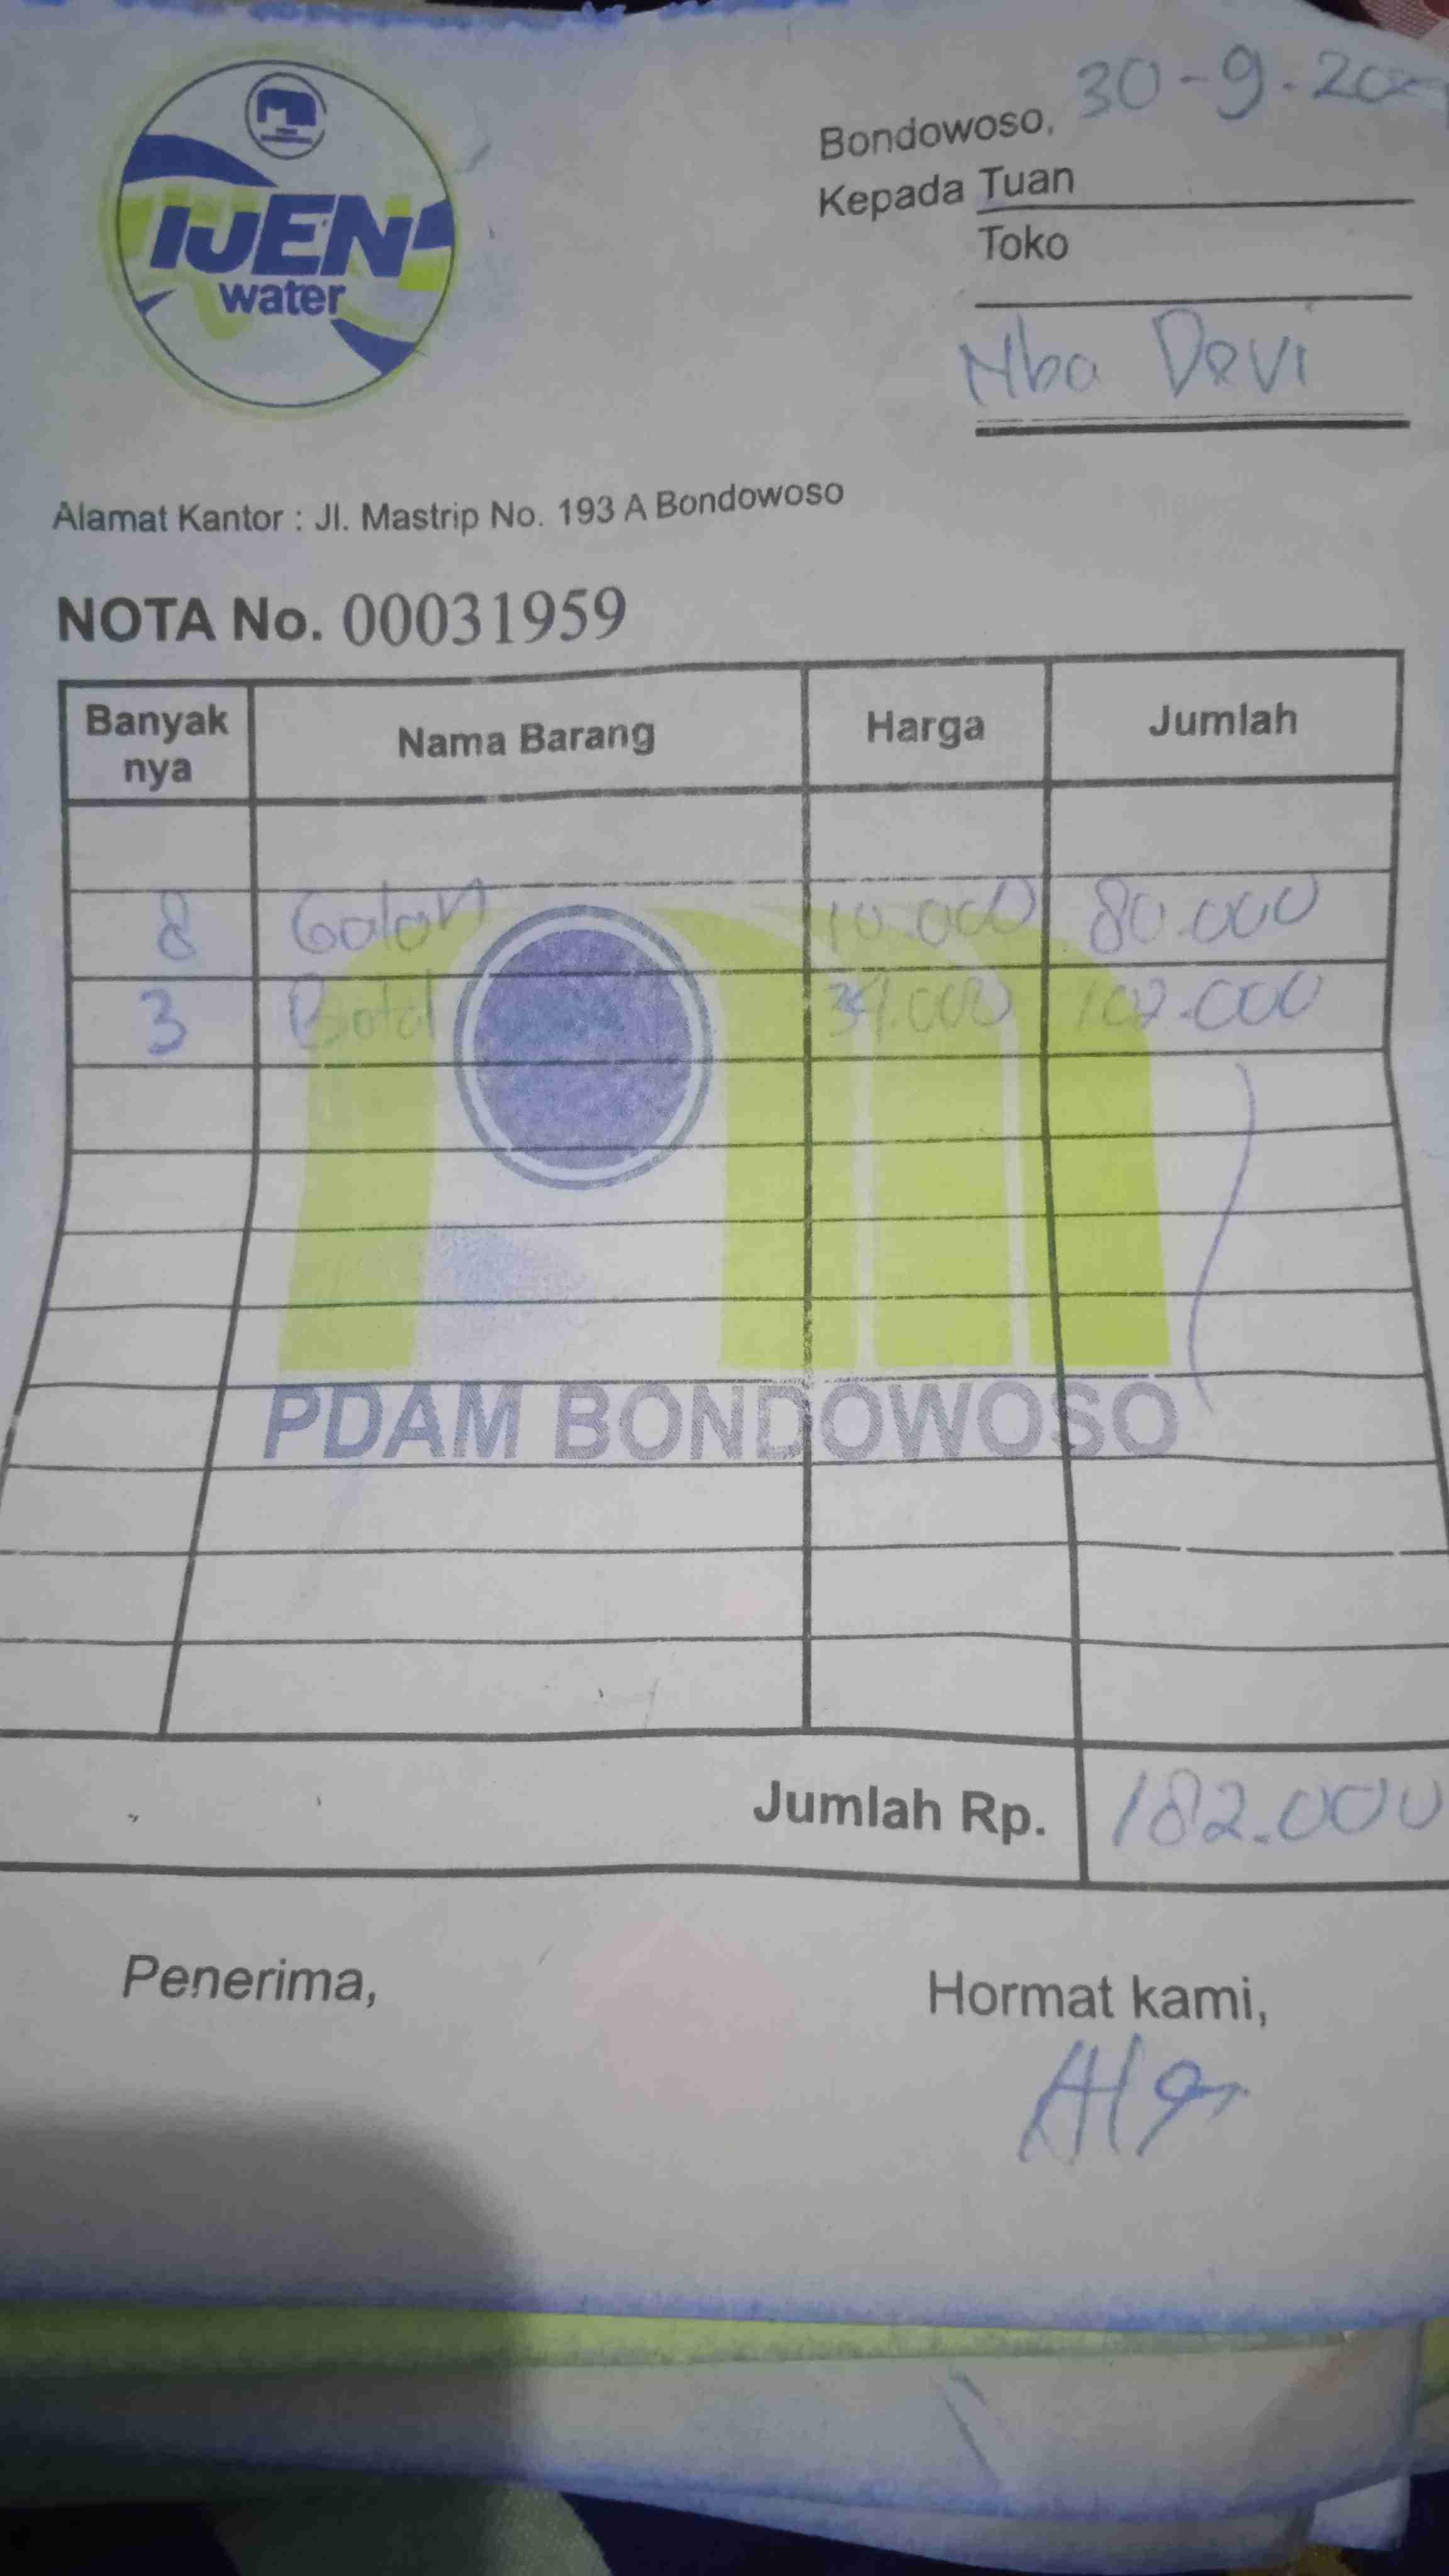 IJEN
water
Bondowoso, 30-9-
Kepada Tuan
Toko
Mba Devi
Alamat Kantor : Jl. Mastrip No. 193 A Bondowoso
NOTA No. 00031959
Banyak nya Nama Barang Harga Jumlah
8 Galon 10.000 80.000
3 Botol 34.000 102.000
PDAM BONDOWOSO
Jumlah Rp. 182.000
Penerima, Hormat kami,